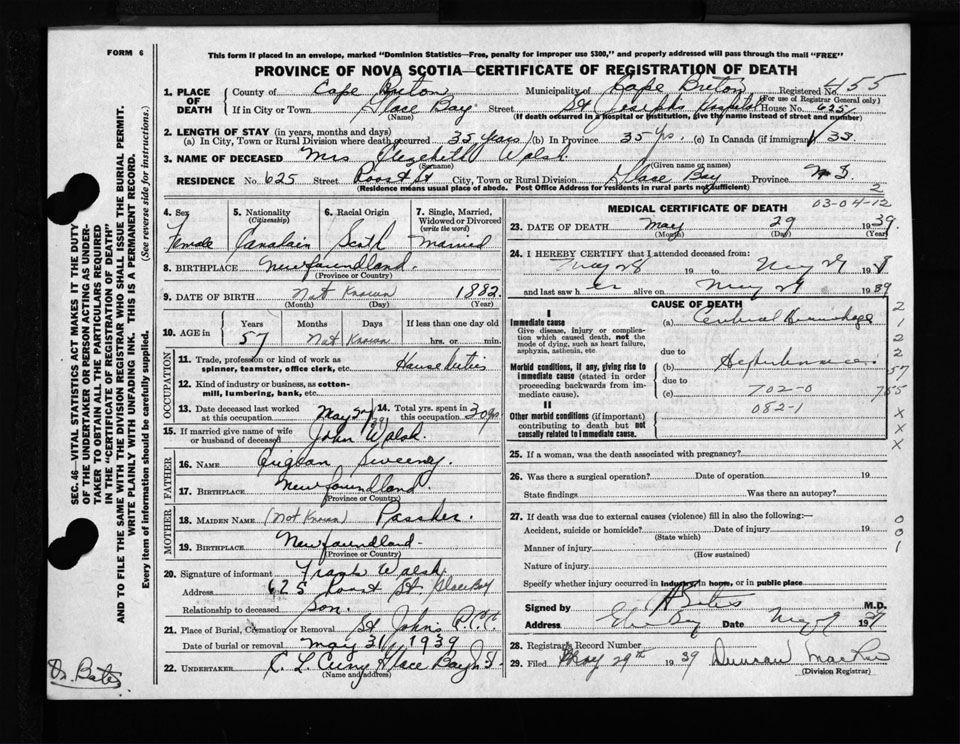 FORM 6
This form if placed in an envelope, marked "Dominion Statistics—Free, penalty for improper use $300," and properly addressed will pass through the mail "FREE"
PROVINCE OF NOVA SCOTIA—CERTIFICATE OF REGISTRATION OF DEATH
1. PLACE OF DEATH County of Cape Breton Municipality of Cape Breton Registered No. 455
(For use of Registrar General only)
If in City or Town Glace Bay Street St Josephs Hospital House No. 625
(Name) (If death occurred in a hospital or institution, give the name instead of street and number)
2. LENGTH OF STAY (in years, months and days)
(a) In City, Town or Rural Division where death occurred 35 years (b) In Province 35 yrs. (c) In Canada (if immigrant) 33
3. NAME OF DECEASED Mrs Walsh
(Surname) (Given name or names)
RESIDENCE No. 625 Street St City, Town or Rural Division Glace Bay Province N S
(Residence means usual place of abode. Post Office Address for residents in rural parts not sufficient)
2
03-04-12
4. Sex Female
5. Nationality (Citizenship) Canadain
6. Racial Origin Scoth
7. Single, Married, Widowed or Divorced (write the word) Married
8. BIRTHPLACE Newfoundland.
(Province or Country)
9. DATE OF BIRTH Not Known 1882
(Month) (Day) (Year)
10. AGE in Years 57 Months Not Known Days If less than one day old hrs. or min.
OCCUPATION
11. Trade, profession or kind of work as spinner, teamster, office clerk, etc. House duties
12. Kind of industry or business, as cotton-mill, lumbering, bank, etc.
13. Date deceased last worked at this occupation May 39
14. Total yrs. spent in this occupation 30 yrs
15. If married give name of wife or husband of deceased John Walsh.
FATHER
16. NAME Sweeney.
17. BIRTHPLACE Newfoundland.
(Province or Country)
MOTHER
18. MAIDEN NAME (Not Known)
19. BIRTHPLACE Newfoundland-
(Province or Country)
20. Signature of informant Frank Walsh
Address 625 St. Glace Bay
Relationship to deceased son.
21. Place of Burial, Cremation or Removal St John's
Date of burial or removal May 31 1939
22. UNDERTAKER Glace Bay N.S.
(Name and address)
MEDICAL CERTIFICATE OF DEATH
23. DATE OF DEATH May 29 1939.
(Month) (Day) (Year)
24. I HEREBY CERTIFY that I attended deceased from:
May 28 19 to May 29 19
and last saw h er alive on May 29 1939
CAUSE OF DEATH
I
Immediate cause
Give disease, injury or complication which caused death, not the mode of dying, such as heart failure, asphyxia, asthenia, etc.
(a) Cerebral Hemorrhage
due to
Morbid conditions, if any, giving rise to immediate cause (stated in order proceeding backwards from immediate cause).
(b)
due to
(c) 702-0
II
082-1
Other morbid conditions (if important) contributing to death but not causally related to immediate cause.
2
1
2
2
57
755
X
X
X
25. If a woman, was the death associated with pregnancy?
26. Was there a surgical operation? Date of operation 19
State findings Was there an autopsy?
27. If death was due to external causes (violence) fill in also the following:—
Accident, suicide or homicide? Date of injury 19
(State which)
Manner of injury
(How sustained)
Nature of injury
Specify whether injury occurred in industry, in home, or in public place
0
0
1
Signed by Bates M.D.
Address Date May 19
28. Registrar's Record Number
29. Filed May 29th 1939 Duncan
(Division Registrar)
SEC. 46—VITAL STATISTICS ACT MAKES IT THE DUTY
OF THE UNDERTAKER OR PERSON ACTING AS UNDER-
TAKER TO OBTAIN ALL THE PARTICULARS REQUIRED
IN THE "CERTIFICATE OF REGISTRATION OF DEATH"
AND TO FILE THE SAME WITH THE DIVISION REGISTRAR WHO SHALL ISSUE THE BURIAL PERMIT.
WRITE PLAINLY WITH UNFADING INK. THIS IS A PERMANENT RECORD.
Every item of information should be carefully supplied. (See reverse side for instructions.)
Dr. Bates